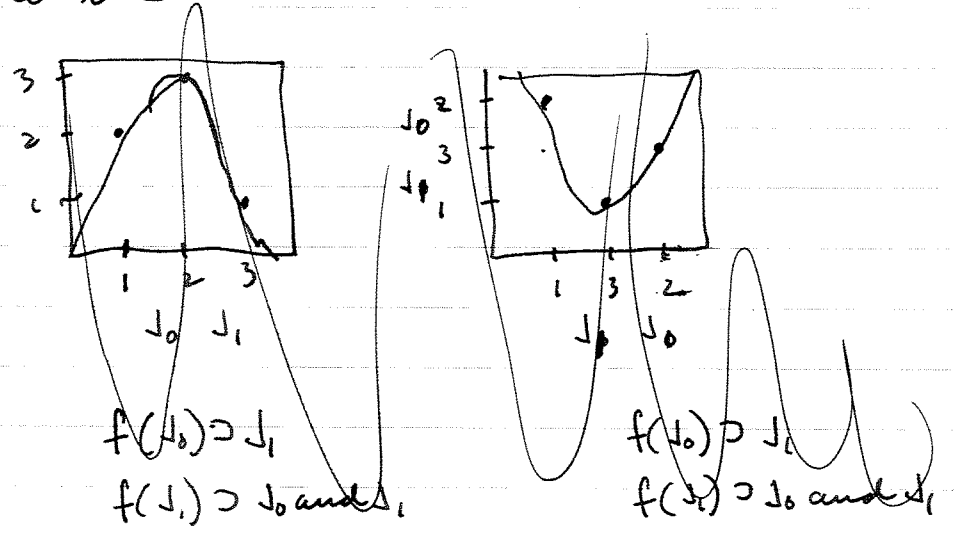 3
2
1
1 2 3
J₀ J₁
f(J₀) ⊃ J₁
f(J₁) ⊃ J₀ and J₁
J₀ 2
3
J₁ 1
1 3 2
J₁ J₀
f(J₀) ⊃ J₁
f(J₁) ⊃ J₀ and J₁